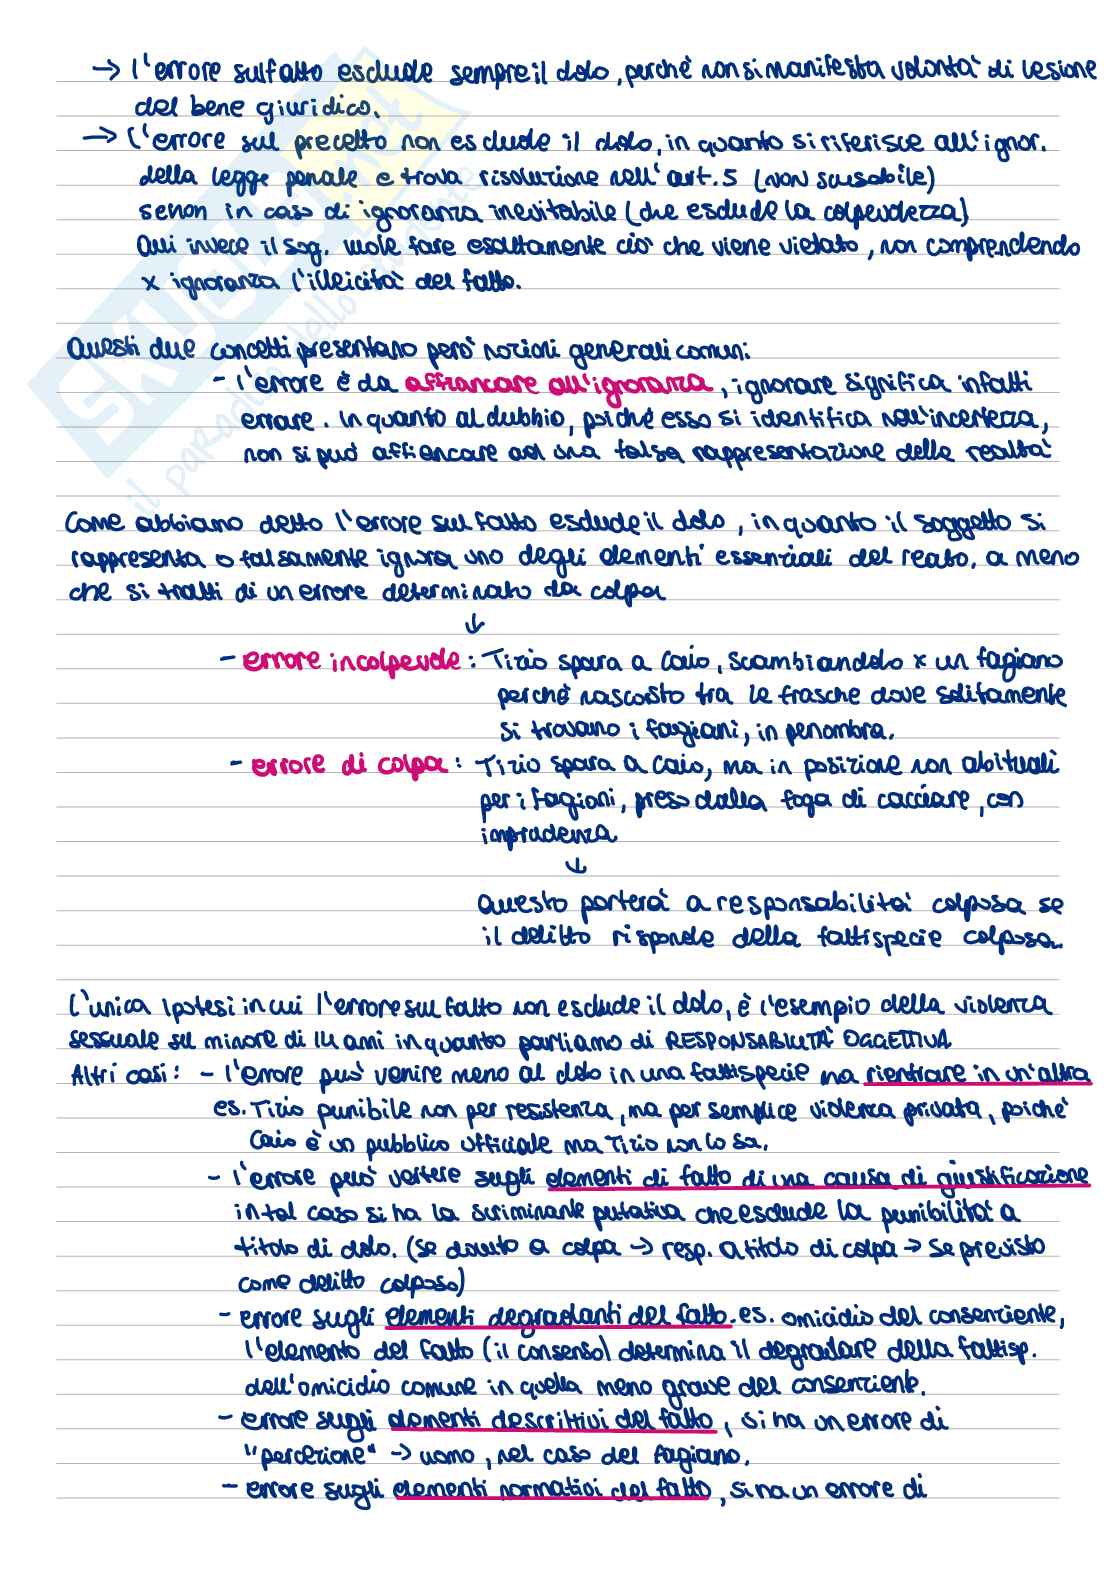 → l'errore sul fatto esclude sempre il dolo, perchè non si manifesta volontà di lesione
del bene giuridico.
→ l'errore sul precetto non esclude il dolo, in quanto si riferisce all'ignor.
della legge penale e trova risoluzione nell'art.5 (non scusabile)
senon in caso di ignoranza inevitabile (che esclude la colpevolezza)
Qui invece il sog. vuole fare esattamente ciò che viene vietato, non comprendendo
x ignoranza l'illiceità del fatto.
Questi due concetti presentano però nozioni generali comuni:
- l'errore è da affiancare all'ignoranza, ignorare significa infatti
errare. In quanto al dubbio, poichè esso si identifica nell'incertezza,
non si può affiancare ad una falsa rappresentazione della realtà
Come abbiamo detto l'errore sul fatto esclude il dolo, in quanto il soggetto si
rappresenta o falsamente ignora uno degli elementi essenziali del reato, a meno
che si tratti di un errore determinato da colpa
↓
- errore incolpevole: Tizio spara a Caio, scambiandolo x un fagiano
perchè nascosto tra le frasche dove solitamente
si trovano i fagiani, in penombra.
- errore di colpa: Tizio spara a Caio, ma in posizione non abituali
per i fagioni, preso dalla foga di cacciare, con
imprudenza
↓
Questo porterà a responsabilità colposa se
il delitto risponde della fattispecie colposa.
L'unica Ipotesi in cui l'errore sul fatto non esclude il dolo, è l'esempio della violenza
sessuale su minore di 14 anni in quanto parliamo di RESPONSABILITÀ OGGETTIVA
Altri casi: - l'errore può venire meno al dolo in una fattispecie ma rientrare in un'altra
es. Tizio punibile non per resistenza, ma per semplice violenza privata, poichè
Caio è un pubblico ufficiale ma Tizio non lo sa.
- l'errore può vertere sugli elementi di fatto di una causa di giustificazione
in tal caso si ha la scriminante putativa che esclude la punibilità a
titolo di dolo. (se dovuto a colpa → resp. a titolo di colpa → se previsto
come delitto colposo)
- errore sugli elementi degradanti del fatto. es. omicidio del consenziente,
l'elemento del fatto (il consenso) determina il degradare della fattisp.
dell'omicidio comune in quella meno grave del consenziente.
- errore sugli elementi descrittivi del fatto, si ha un errore di
"percezione" → uomo, nel caso del fagiano.
- errore sugli elementi normativi del fatto, si ha un errore di